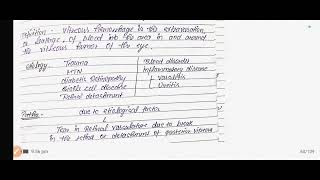 Definition - Vitreous Hemorrhage is the extravasation,
or leakage of blood into the area in and around
the vitreous humor of the eye.
etiology - Trauma
HTN
Diabetic Retinopathy
Sickle cell disease
Retinal detachment
Blood disorder
Inflammatory disease
Vasculitis
Uveitis
Patho - due to etiological factor
↓
Tear in Retinal vasculature due to break
in the retina or detachment of posterior vitreous
9:56 pm
60/109